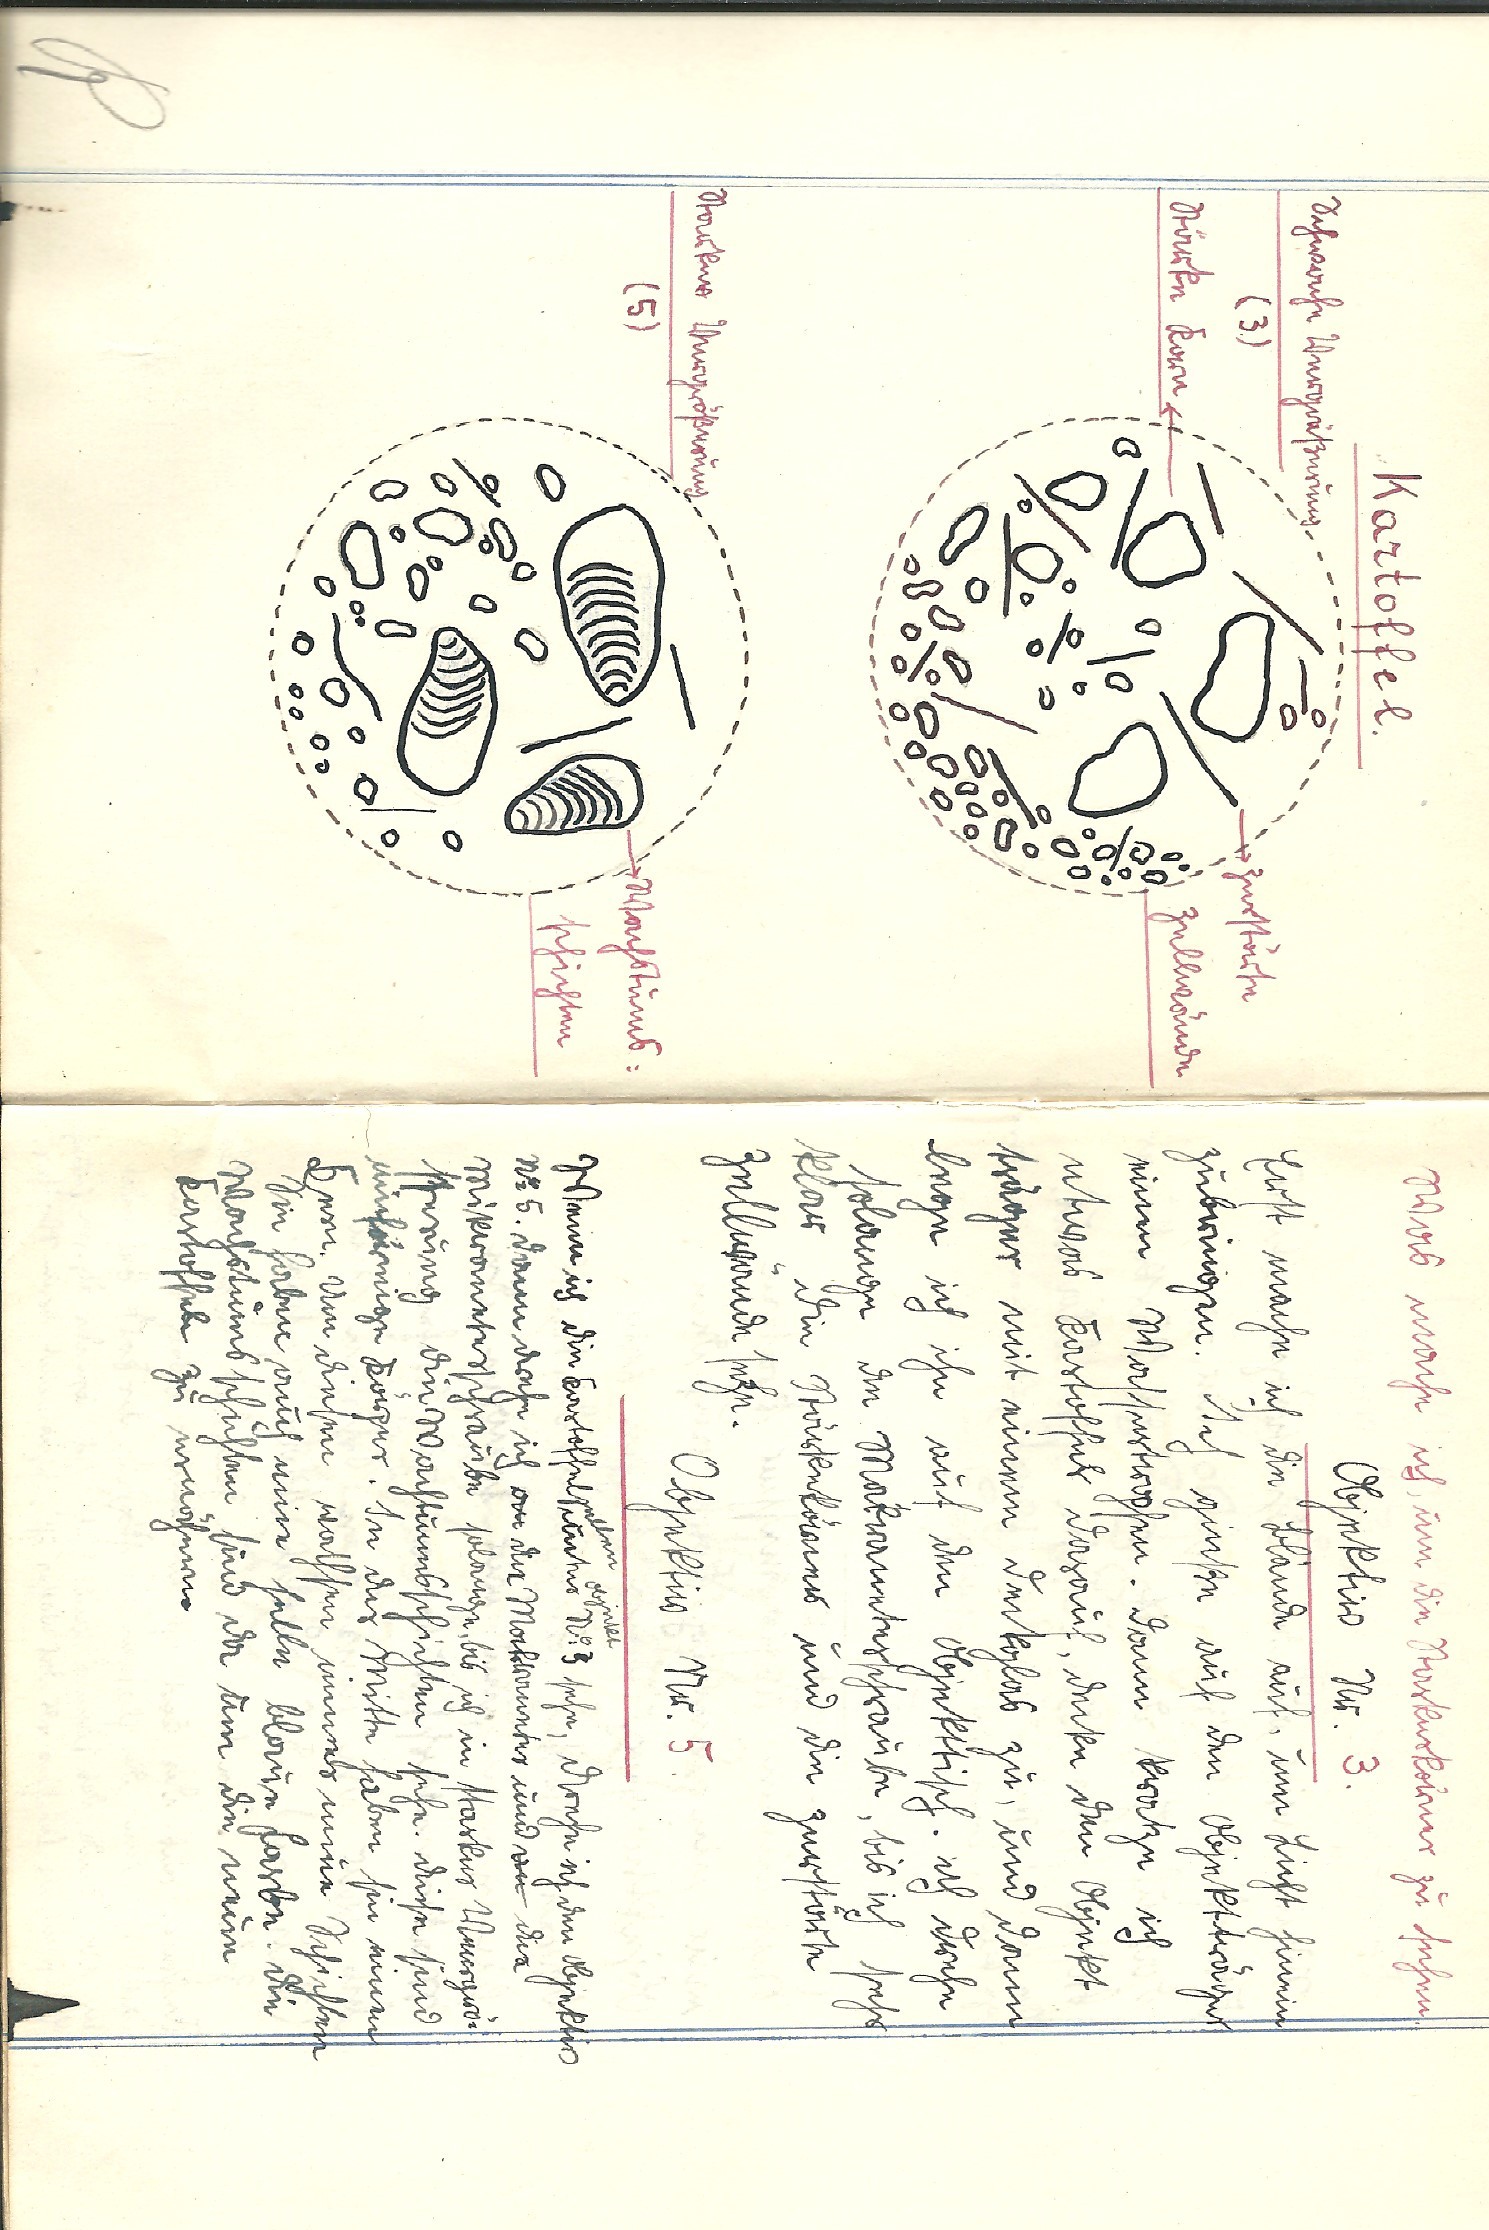 Kartoffel.
Schwache Vergräßerung
(3)
zerstörte
Stärke Korn
Zellwände
Starker Vergrößerung
(5)
Wachstums=
schichten
Was mache ich, um die Starkerkörner zu sehen.
Objektiv Nr. 3.
Erst mache ich die Blände auf, um Licht hinein
zubringen. Ich gieße auf den Objektträger
einen Wassertropfen. Dann kratze ich
etwas Kartoffel darauf, decke den Objekt
träger mit einem Deckglas zu, und dann
lege ich ihn auf den Objekttisch. Ich drehe
solange die Makrameterschraube, bis ich sehr
klar die Stärkekörner und die zerstörte
Zellwände sehe.
Objektiv Nr. 5.
Wenn ich die Kartoffelzellen unter Objekt No 3 sehe, drehe ich den Objektiv
No 5. Dann drehe ich an der Makrameter und an die
Mikrameterschraube solange, bis ich in starker Veergrö=
sserung die Wachtumsschichten sehe. Diese sind
eiförmige Körper. In der Mitte haben sie einen
Kern. Um diesen wachsen immer neue Schichten
Sie haben auch eine helle blaue Farbe. Die
Wachstumsschichten sind da um die neue
Kartoffel zu ernähern